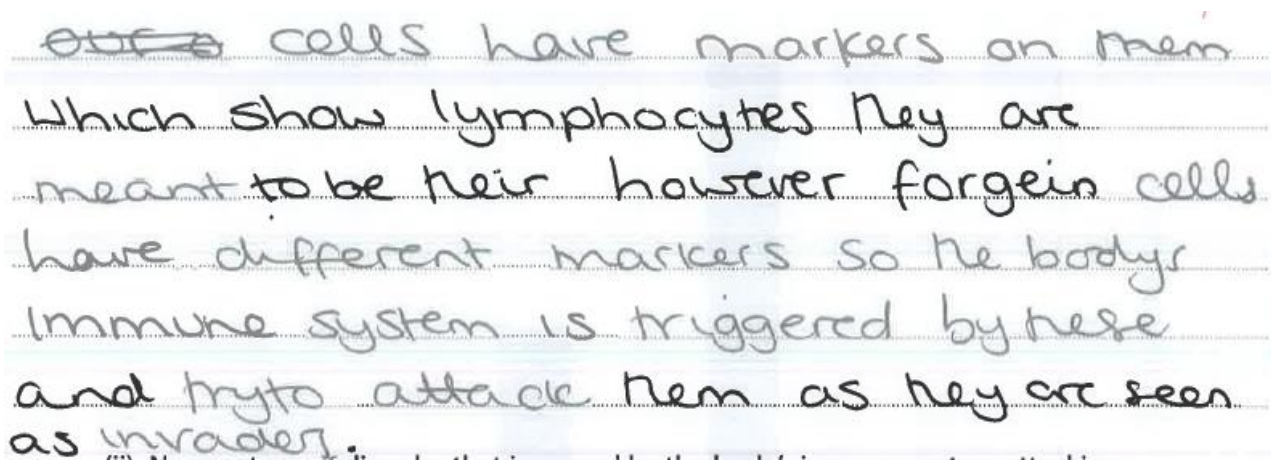 cells have markers on them
which show lymphocytes they are
meant to be their however forgein cells
have different markers so the bodys
immune system is triggered by these
and try to attack them as they are seen
as invaders.